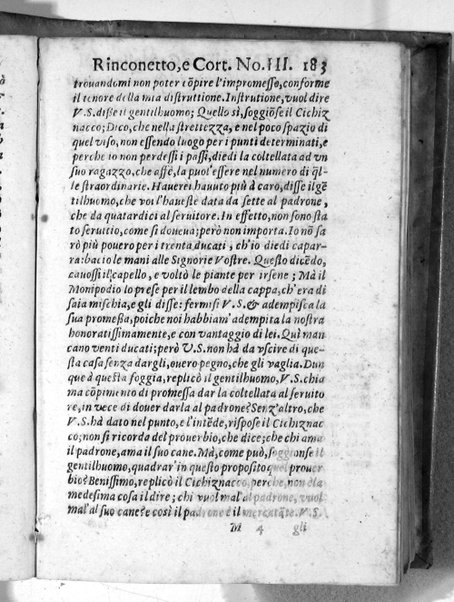 Rinconetto, e Cort. No. III. 183
trouandomi non poter cõpire l'impromesso, conforme
il tenore della mia distruttione. Instrutione, vuol dire
V.S. disse il gentilhuomo; Quello sì, soggiõse il Cichiz
nacco; Dico, che nella strettezza, e nel poco spazio di
quel viso, non essendo luogo per i punti determinati, e
perche io non perdessi i passi, diedi la coltellata ad vn
suo ragazzo, che affè, la puol'essere nel numero di q̃l
le straordinarie. Hauerei hauuto più à caro, disse il gẽ
tilhuomo, che voi l'haueste data da sette al padrone,
che da quatardici al seruitore. In effetto, non sono sta
to seruitio, come si doueua; però non importa. Io nõ sa
rò più pouero per i trenta ducati, ch'io diedi capar-
ra: bacio le mani alle Signorie Vostre. Questo dicẽdo,
cauossi il capello, e voltò le piante per irsene; Mà il
Monipodio lo prese per il lembo della cappa, ch'era di
saia mischia, e gli disse: fermisi V.S. & adempisca la
sua promessa, poiche noi habbiam' adempita la nostra
honoratissimamente, e con vantaggio di lei. Quì man
cano venti ducati; però V.S. non hà da vscire di que-
sta casa senza dargli, ouero pegno, che gli vaglia. Dun
que à questa foggia, replicò il gentilhuomo, V.S. chia
ma cõpimento di promessa dar la coltellata al seruito
re, in vece di douer darla al padrone? Senz'altro, che
V.S. hà dato nel punto, e l'intẽde, rispose il Cichiznac
co; non si ricorda del prouerbio, che dice; che chi ama
il padrone, ama il suo cane. Mà, come può, soggionse il
gentilhuomo, quadrar' in questo proposito quel prouer
bio? Benissimo, replicò il Cichiznacco, perche, non è la
medesima cosa il dire; chi vuol mal'al padrone, vuol
mal'al suo cane? e così il padrone è il mercatãte. V.S.
M 4 gli